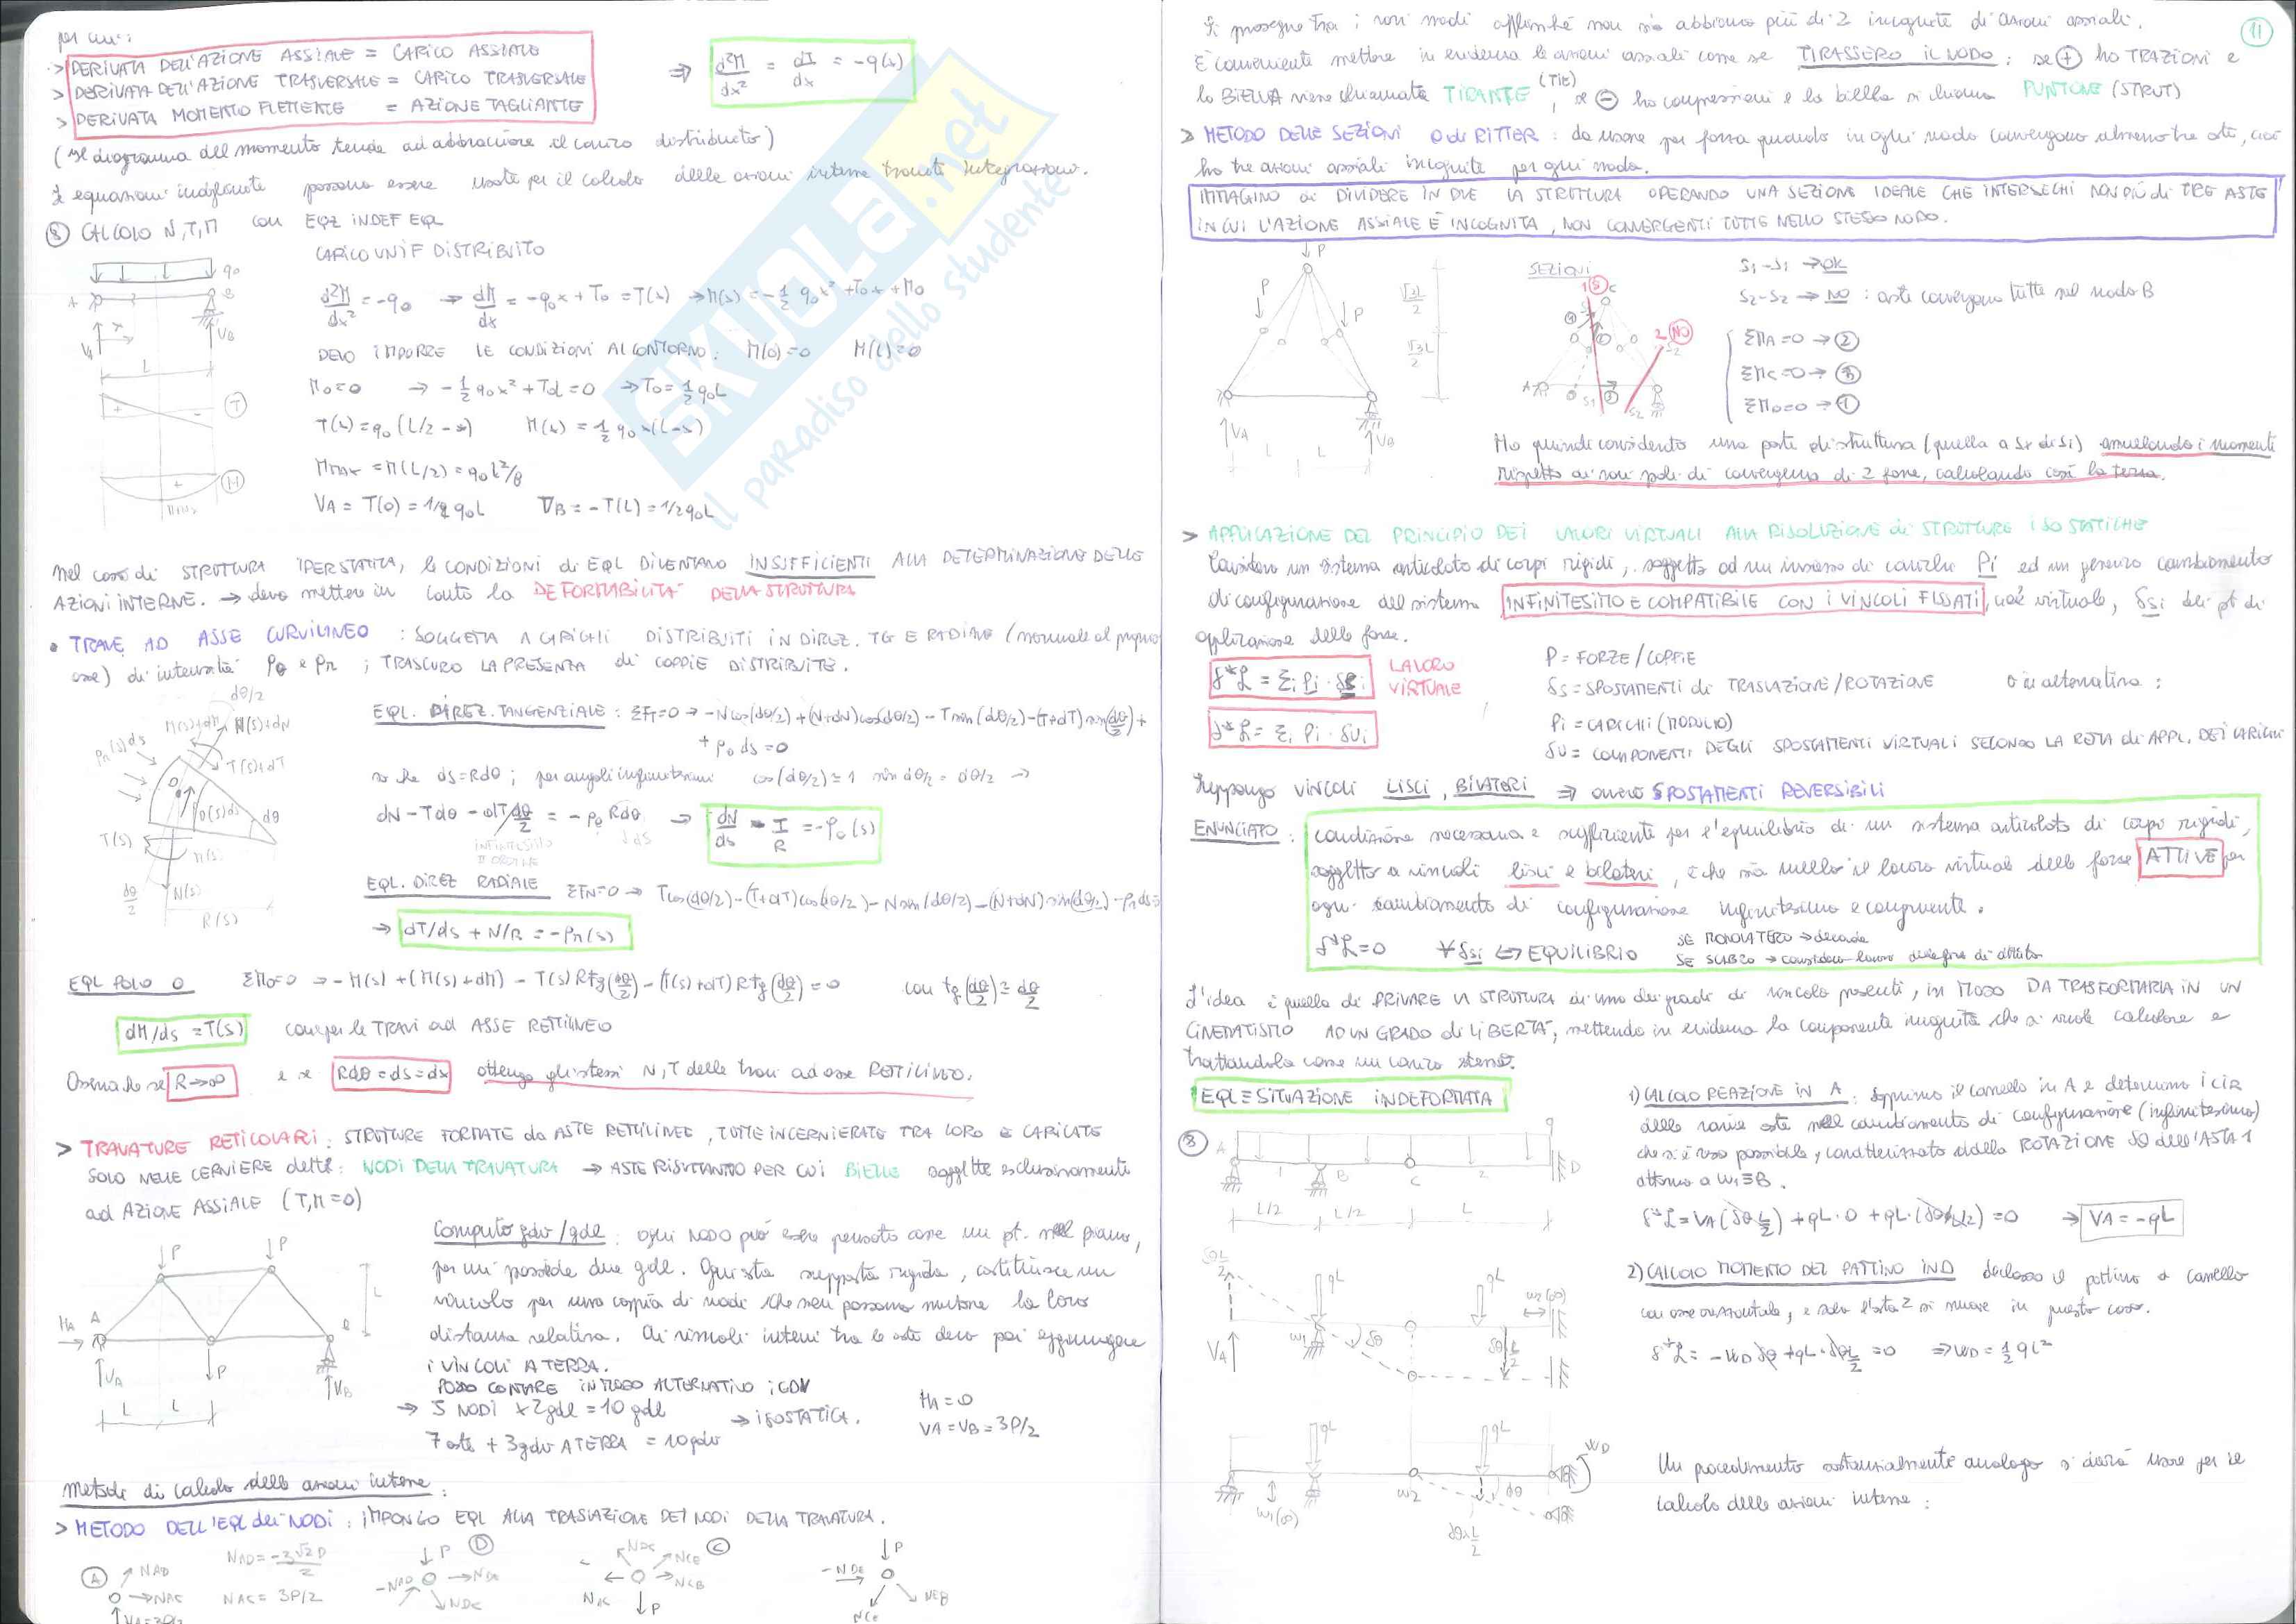 per cui:
> DERIVATA DELL'AZIONE ASSIALE = CARICO ASSIALE
> DERIVATA DELL'AZIONE TRASVERSALE = CARICO TRASVERSALE
> DERIVATA MOMENTO FLETTENTE = AZIONE TAGLIANTE
⇒ d²M/dx² = dT/dx = -q(s)
(Il diagramma del momento tende ad abbracciare il carico distribuito)
Le equazioni indefinite possono essere usate per il calcolo delle azioni interne tramite integrazioni.
CALCOLO N,T,M con EQZ INDEF EQL
CARICO UNIF DISTRIBUITO
q0
A B
VA VB
L
d²M/dx² = -q0 → dM/dx = -q0x + T0 = T(s) → M(s) = -1/2 q0x² + T0x + M0
DEVO IMPORRE LE CONDIZIONI AL CONTORNO: M(0)=0 M(L)=0
M0=0 → -1/2 q0x² + T0L = 0 → T0 = 1/2 q0L
T(s) = q0(L/2 - s) M(s) = 1/2 q0 s(L-s)
Mmax = M(L/2) = q0L²/8
VA = T(0) = 1/2 q0L VB = -T(L) = 1/2 q0L
Nel caso di STRUTTURA IPERSTATICA, le CONDIZIONI di EQL DIVENTANO INSUFFICIENTI ALLA DETERMINAZIONE DELLE
AZIONI INTERNE. → devo mettere in conto la DEFORMABILITÀ DELLA STRUTTURA
• TRAVE AD ASSE CURVILINEO: SOGGETTA A CARICHI DISTRIBUITI IN DIREZ. TG E RADIALE (normale al proprio
asse) di intensità pθ e pn; TRASCURO LA PRESENZA di COPPIE DISTRIBUITE.
EQL. DIREZ. TANGENZIALE: ΣFT=0 → -Ncos(dθ/2) + (N+dN)cos(dθ/2) - Tsin(dθ/2) - (T+dT)sin(dθ/2) +
+ pθ ds = 0
so che ds=Rdθ; per angoli infinitesimi cos(dθ/2)≅1 sin dθ/2 = dθ/2 →
dN - Tdθ - dT dθ/2 = -pθ Rdθ → dN/ds - T/R = -pθ(s)
INFINITESIMO II ORDINE
EQL. DIREZ RADIALE ΣFN=0 → Tcos(dθ/2) - (T+dT)cos(dθ/2) - Nsin(dθ/2) - (N+dN)sin(dθ/2) - pnds=
→ dT/ds + N/R = -pn(s)
EQL POLO O ΣMo=0 → -M(s) + (M(s)+dM) - T(s)Rtg(dθ/2) - (T(s)+dT)Rtg(dθ/2) = 0 con tg(dθ/2)≅dθ/2
dM/ds = T(s) come per le TRAVI ad ASSE RETTILINEO
Osservo che se R→∞ e se Rdθ=ds=dx ottengo gli stessi N,T delle travi ad asse RETTILINEO.
> TRAVATURE RETICOLARI: STRUTTURE FORMATE da ASTE RETTILINEE, TUTTE INCERNIERATE TRA LORO E CARICATE
SOLO NELLE CERNIERE dette: NODI DELLA TRAVATURA → ASTE RISULTANO PER CUI BIELLE soggette esclusivamente
ad AZIONE ASSIALE (T,M=0)
Computo gdv/gdl: ogni NODO può essere pensato come un pt. nel piano,
per cui possiede due gdl. Ogni asta supposta rigida, costituisce un
vincolo per una coppia di nodi che non possono mutare la loro
distanza relativa. Ai vincoli interni tra le aste devo poi aggiungere
i VINCOLI A TERRA.
POSSO CONTARE IN MODO ALTERNATIVO i GDV
→ 5 NODI x 2gdl = 10 gdl → ISOSTATICA.
7 aste + 3gdv A TERRA = 10gdv
HA = 0
VA = VB = 3P/2
Metodi di calcolo delle azioni interne:
> METODO DELL'EQL dei NODI: IMPONGO EQL ALLA TRASLAZIONE DEI NODI DELLA TRAVATURA.
NAD = -3√2P/2
NAC = 3P/2
Si prosegue tra i vari nodi affinché non si abbiano più di 2 incognite di azioni assiali.
11
È conveniente mettere in evidenza le azioni assiali come se TIRASSERO IL NODO: se ⊕ ho TRAZIONI e
la BIELLA viene chiamata TIRANTE (TIE), se ⊖ ho compressioni e la biella si chiama PUNTONE (STRUT)
> METODO DELLE SEZIONI O di RITTER: da usare per forza quando in ogni nodo convengono almeno tre aste, cioè
ho tre azioni assiali incognite per ogni nodo.
IMMAGINO di DIVIDERE IN DUE LA STRUTTURA OPERANDO UNA SEZIONE IDEALE CHE INTERSECHI NON PIÙ di TRE ASTE
IN CUI L'AZIONE ASSIALE È INCOGNITA, NON CONVERGENTI TUTTE NELLO STESSO NODO.
SEZIONI
S1-S1 → OK
S2-S2 → NO: aste convergono tutte nel nodo B
ΣMA=0 → ②
ΣMC=0 → ③
ΣMD=0 → ①
Ho quindi considerato una parte di struttura (quella a sx di S1) annullando i momenti
rispetto ai vari poli di convergenza di 2 forze, calcolando così la terza.
> APPLICAZIONE DEL PRINCIPIO DEI LAVORI VIRTUALI ALLA RISOLUZIONE di STRUTTURE ISOSTATICHE
Considero un sistema articolato di corpi rigidi, soggetto ad un insieme di carichi Pi ed un generico cambiamento
di configurazione del sistema INFINITESIMO E COMPATIBILE CON I VINCOLI FISSATI, cioè virtuale, δsi dei pt di
applicazione delle forze.
δ*L = Σi Pi · δsi LAVORO VIRTUALE
P = FORZE/COPPIE
δs = SPOSTAMENTI di TRASLAZIONE/ROTAZIONE o in alternativa:
δ*L = Σi Pi · δui
Pi = CARICHI (MODULO)
δu = COMPONENTI DEGLI SPOSTAMENTI VIRTUALI SECONDO LA RETTA di APPL. DEI CARICHI
Suppongo VINCOLI LISCI, BILATERI ⇒ ovvero SPOSTAMENTI REVERSIBILI
ENUNCIATO: condizione necessaria e sufficiente per l'equilibrio di un sistema articolato di corpi rigidi,
soggetto a vincoli lisci e bilateri, è che sia nullo il lavoro virtuale delle forze ATTIVE per
ogni cambiamento di configurazione infinitesimo e congruente.
δ*L=0 ∀δsi ⇔ EQUILIBRIO
SE MONOLATERO → decade
SE SCABRO → considero lavoro delle forze di attrito
L'idea è quella di PRIVARE LA STRUTTURA di uno dei gradi di vincolo presenti, in MODO DA TRASFORMARLA IN UN
CINEMATISMO AD UN GRADO di LIBERTÀ, mettendo in evidenza la componente incognita che si vuole calcolare e
trattandola come un carico esterno.
EQL = SITUAZIONE INDEFORMATA
1) CALCOLO REAZIONE IN A: sopprimo il carrello in A e determino i CIR
delle varie aste nel cambiamento di configurazione (infinitesimo)
che si è reso possibile, caratterizzato dalla ROTAZIONE δθ dell'ASTA 1
attorno a ω1≡B.
δ*L = VA(δθ L/2) + qL·0 + qL·(δθL/2) = 0 ⇒ VA = -qL
2) CALCOLO MOMENTO DEL PATTINO IN D declasso il pattino a carrello
con asse orizzontale, e solo l'asta 2 si muove in questo caso.
δ*L = -WD δθ + qL·δθL/2 = 0 ⇒ WD = 1/2 qL²
Un procedimento sostanzialmente analogo si dovrà usare per il
calcolo delle azioni interne:
SKUOLA.net
il paradiso dello studente